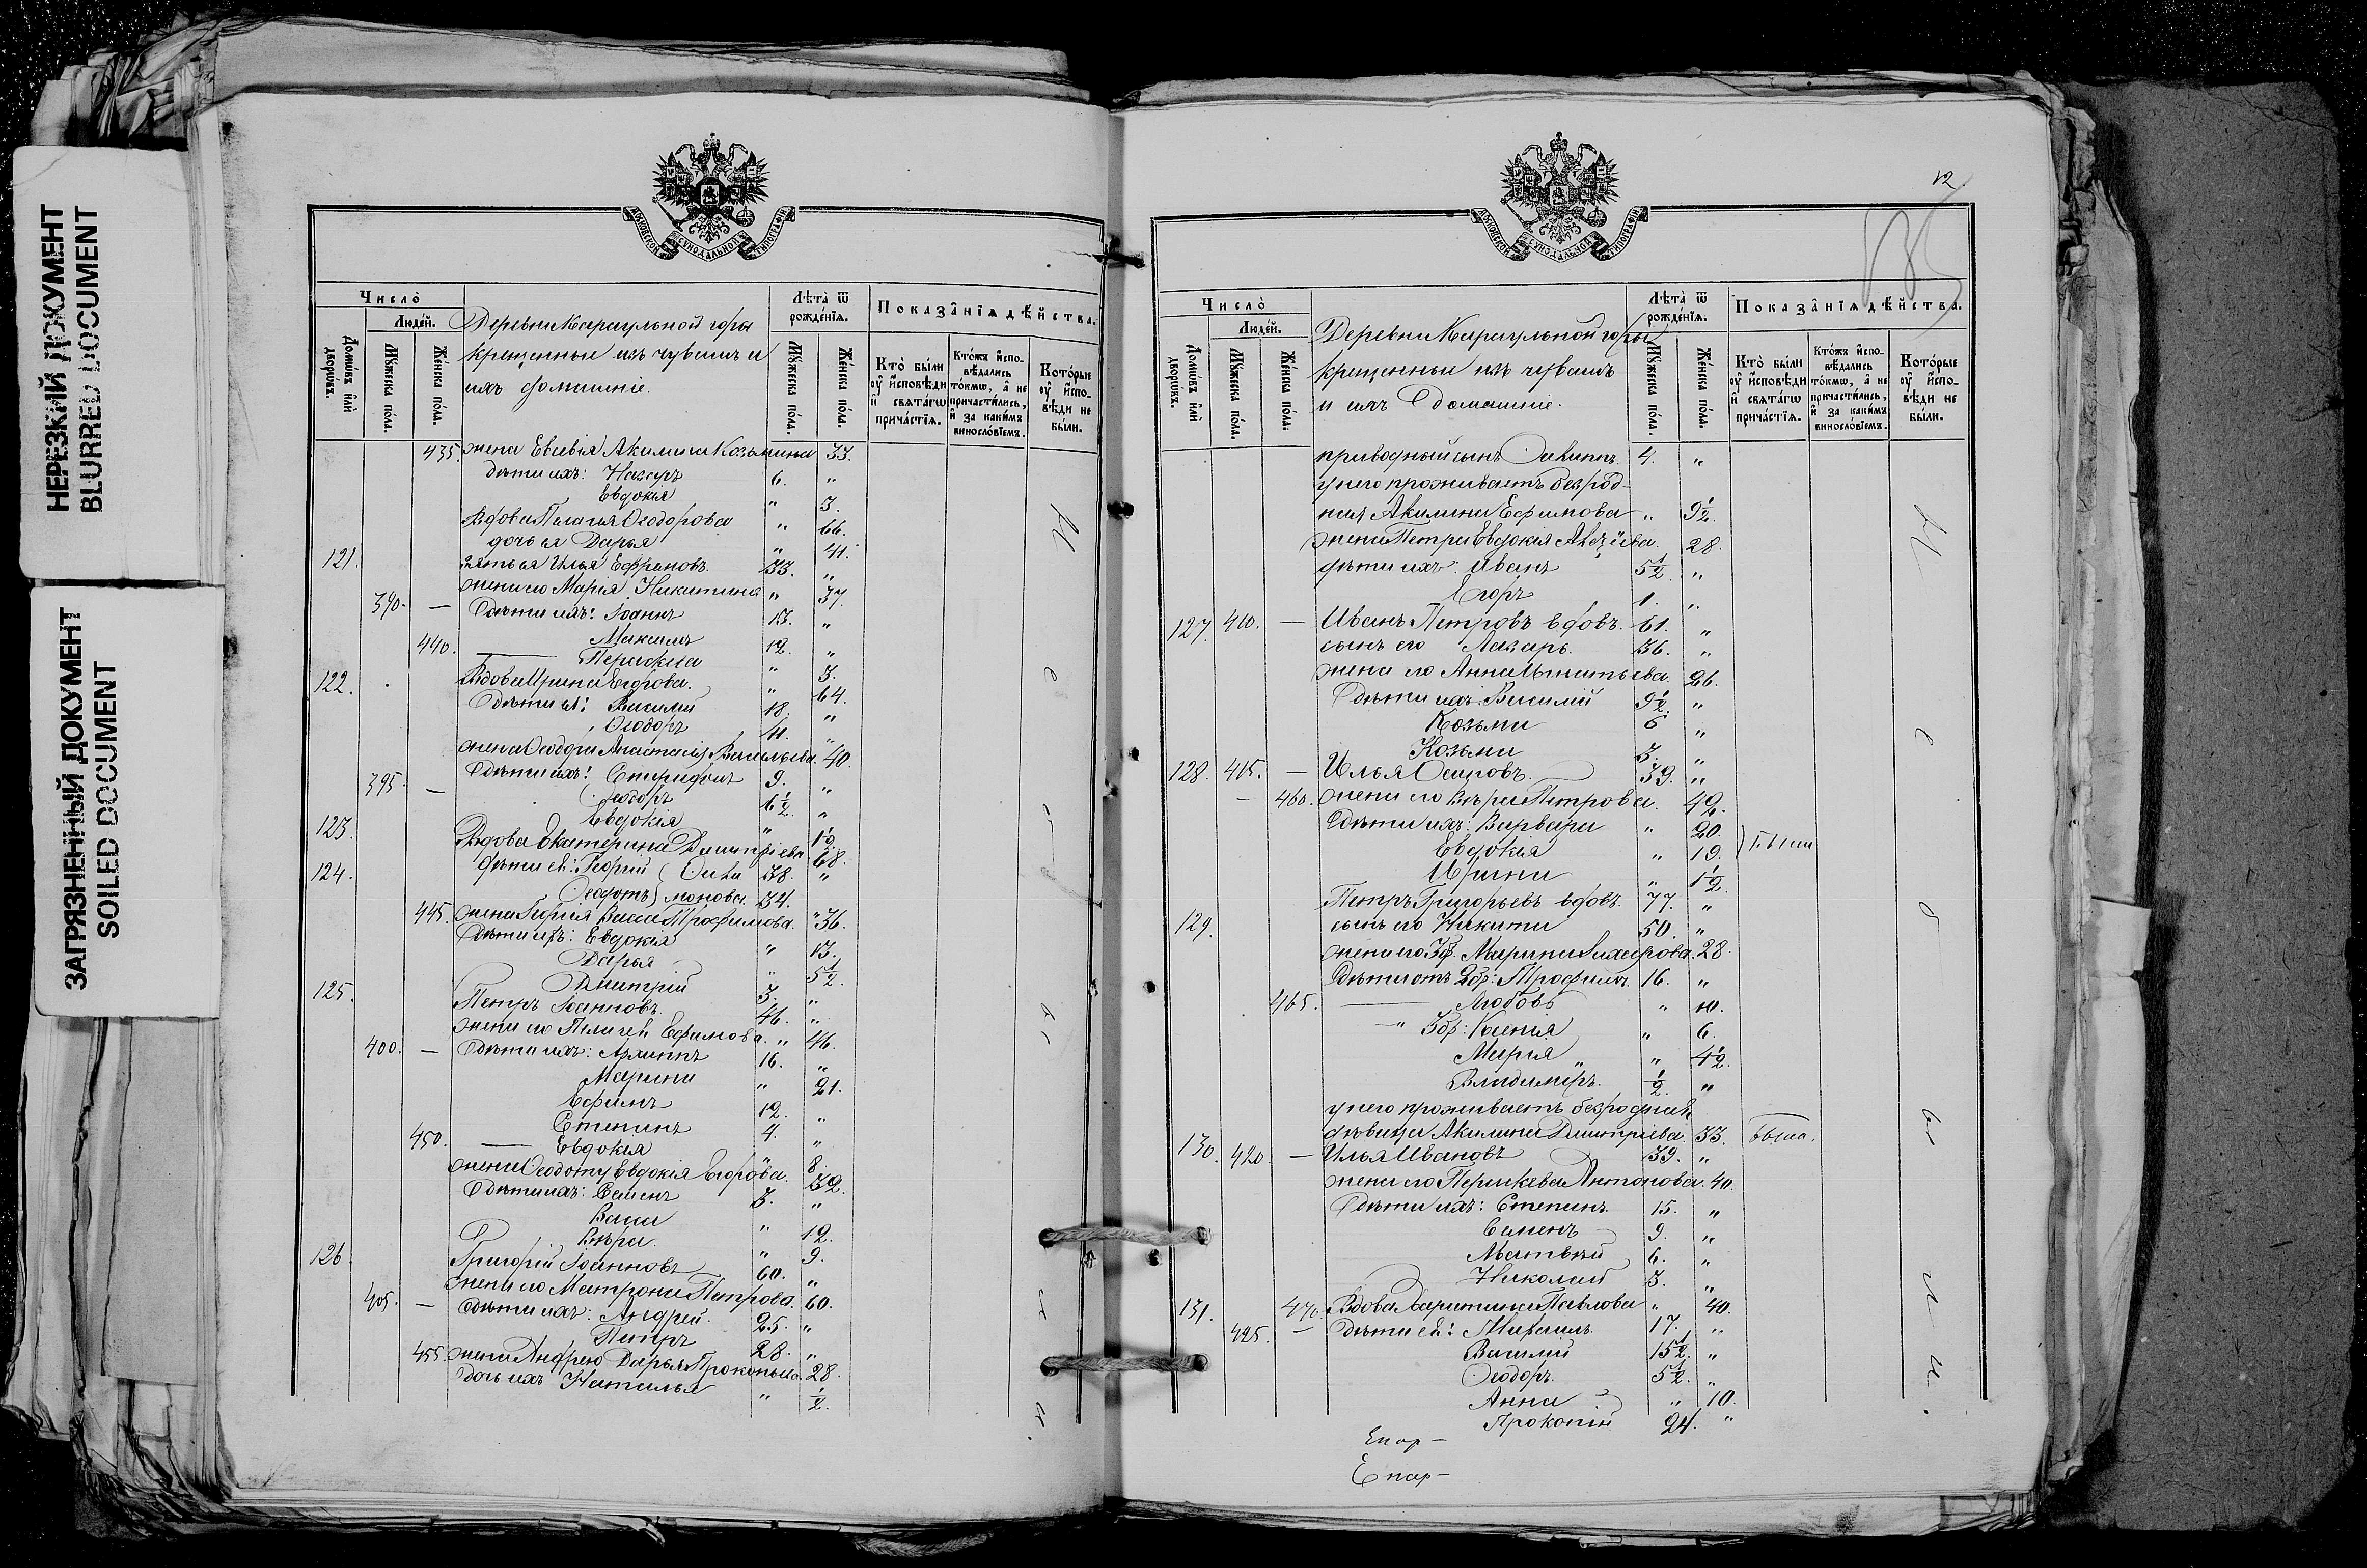 НЕРЕЗКИЙ ДОКУМЕНТ
BLURRED DOCUMENT
ЗАГРЯЗНЕННЫЙ ДОКУМЕНТ
SOILED DOCUMENT
МОСКОВСКОЙ СѴНОДАЛЬНОЙ ТИПОГРАФІИ
Число̀
Людей.
Домѡвъ и҆лѝ дворѡвъ.
Мꙋжеска по́ла.
Же́нска по́ла.
Деревни Караульной горы
крещенные изъ чувашъ и
ихъ домашніе.
Лѣта̀ ѿ рожде́нїѧ.
Мꙋжеска по́ла.
Же́нска по́ла.
Показа̑нїѧ дѣ́йства.
Кто̀ бы́ли оу҆ и҆сповѣ́ди и҆ свѧта́гѡ прича́стїѧ.
Кто́жъ и҆спо- вѣ́дались то́кмѡ, а҆ не причасти́лись, и҆ за каки́мъ винослов́їемъ.
Кото́рые оу҆ и҆спо- вѣ́ди не бы́ли.
435. жена Евсевія Акилина Козьмина 33.
дѣти ихъ: Назаръ 6. "
Евдокія " 3.
Вдова Пелагья Ѳеодорова " 66.
дочь ея Дарья " 41.
121. зять ея Илья Ефремовъ 33. "
жена его Марія Никитина " 37.
390. — дѣти ихъ: Іоаннъ 13. "
Максимъ 12. "
440. — Параскева " 3.
122. Вдова Ирина Егорова. " 64.
дѣти ея: Василій 18. "
Ѳеодоръ 41. "
жена Ѳеодора Анастасія Васильева 40.
395. — дѣти ихъ: Спиридонъ 9. "
Ѳеодоръ 6½. "
Евдокія " ½.
123. Вдова Екатерина Димитріева 68.
124. дѣти ея: Георгій 38. "
Ѳедотъ 34.
445. жена Георгія Васса Трофимова. " 36.
дѣти ихъ: Евдокія " 13.
Дарья " 5½.
Димитрій 3. "
125. Петръ Іоанновъ. 46. "
жена его Пелагея Ефимова. " 46.
400. — дѣти ихъ: Архиппъ 16. "
Марина " 21.
Ефимъ 12. "
Степанъ 4. "
450. — Евдокія " 8.
жена Ѳеодоту Евдокія Егорова. 32.
дѣти ихъ: Семенъ 3. "
Васса " 12.
Вѣра. " 9.
126. Григорій Іоанновъ 60. "
жена его Матрона Петрова. 60.
405. — дѣти ихъ: Андрей. 25. "
Петръ 28. "
455. жена Андрею Дарья Прокопьева 28.
дочь ихъ Наталья " ½.
Не были.
12
МОСКОВСКОЙ СѴНОДАЛЬНОЙ ТИПОГРАФІИ
Число̀
Людей.
Домѡвъ и҆лѝ дворѡвъ.
Мꙋжеска по́ла.
Же́нска по́ла.
Деревни Караульной горы
крещенные изъ чувашъ
и ихъ домашніе.
Лѣта̀ ѿ рожде́нїѧ.
Мꙋжеска по́ла.
Же́нска по́ла.
Показа̑нїѧ дѣ́йства.
Кто̀ бы́ли оу҆ и҆сповѣ́ди и҆ свѧта́гѡ прича́стїѧ.
Кто́жъ и҆спо- вѣ́дались то́кмѡ, а҆ не причасти́лись, и҆ за каки́мъ винослов́їемъ.
Кото́рые оу҆ и҆спо- вѣ́ди не бы́ли.
приводный сынъ Филиппъ. 4. "
у него проживаетъ безрод-
ная Акилина Ефимова " 9½.
жена Петра Евдокія 28.
дѣти ихъ: Иванъ 5½. "
Егоръ 1. "
127. 410. — Иванъ Петровъ вдовъ. 61. "
сынъ его Лазарь. 36. "
жена его Анна Игнатьева. 26.
дѣти ихъ: Василій 9½. "
Козьма 6 "
Козьма 3. "
128. 415. — Илья Осиповъ. 39. "
— 460. жена его Вѣра Петрова. 42.
дѣти ихъ: Варвара " 20.
Евдокія " 19. } Были
Ирина " 1½.
Петръ Григорьевъ вдовъ. 77. "
129. сынъ его Никита 50. "
жена его 3 бр. Марина 28.
дѣти отъ 2 бр: Трофимъ. 16. "
465. — Любовь " 10.
—"— 3 бр: Ксенія " 6.
Марія " " 4½.
Владиміръ. ½. "
у него проживаетъ безродная
дѣвица Акилина Димитріева. 33. Была.
130. 420. — Илья Ивановъ 39. "
жена его Параскева Антонова. 40.
дѣти ихъ: Степанъ 15. "
Семенъ 9. "
Матвѣй 6. "
Николай 3. "
131. 470. Вдова Харитина Павлова " 40.
425. — дѣти ея: Михаилъ. 17. "
Василій 15½. "
Ѳеодоръ. 5½. "
Анна " 10.
Прокопій 24. "
Не были.
Епар-
Епар-